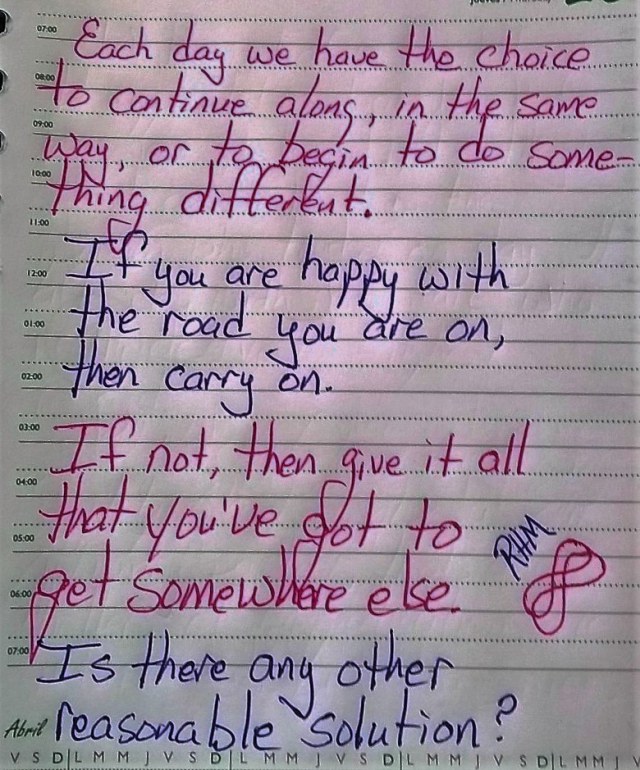 07:00 Each day we have the choice
08:00 to continue along, in the same
09:00 way, or to begin to do some-
10:00 thing different.
11:00
12:00 If you are happy with
01:00 the road you are on,
02:00 then carry on.
03:00 If not, then give it all
04:00 that you've got to
05:00 RHM
06:00 get somewhere else.
07:00 Is there any other
Abril reasonable solution?
V S D L M M J V S D L M M J V S D L M M J V S D L M M J V